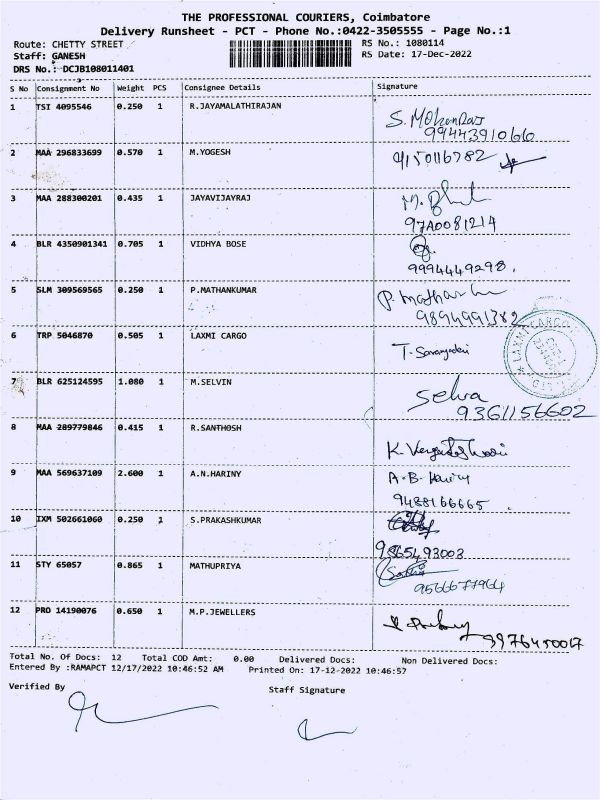 THE PROFESSIONAL COURIERS, Coimbatore
Delivery Runsheet - PCT - Phone No.:0422-3505555 - Page No.:1
Route: CHETTY STREET
Staff: GANESH
DRS No.: DCJB108011401
RS No.: 1080114
RS Date: 17-Dec-2022
S No Consignment No Weight PCS Consignee Details Signature
1 TSI 4095546 0.250 1 R.JAYAMALATHIRAJAN
99443910660
2 MAA 296833699 0.570 1 M.YOGESH
9150116782
3 MAA 288300201 0.435 1 JAYAVIJAYRAJ
4 BLR 4350901341 0.705 1 VIDHYA BOSE
9994449298.
5 SLM 309569565 0.250 1 P.MATHANKUMAR
9894991382
6 TRP 5046870 0.505 1 LAXMI CARGO
LAXMI CARGO
7 BLR 625124595 1.080 1 M.SELVIN
Selva
9361156602
8 MAA 289779846 0.415 1 R.SANTHOSH
9 MAA 569637109 2.600 1 A.N.HARINY
A.B. Hariny
9488166665
10 IXM 502661060 0.250 1 S.PRAKASHKUMAR
9865493003
11 STY 65057 0.865 1 MATHUPRIYA
9566677964
12 PRO 14190076 0.650 1 M.P.JEWELLERS
Total No. Of Docs: 12 Total COD Amt: 0.00 Delivered Docs: Non Delivered Docs:
Entered By :RAMAPCT 12/17/2022 10:46:52 AM Printed On: 17-12-2022 10:46:57
Verified By
Staff Signature